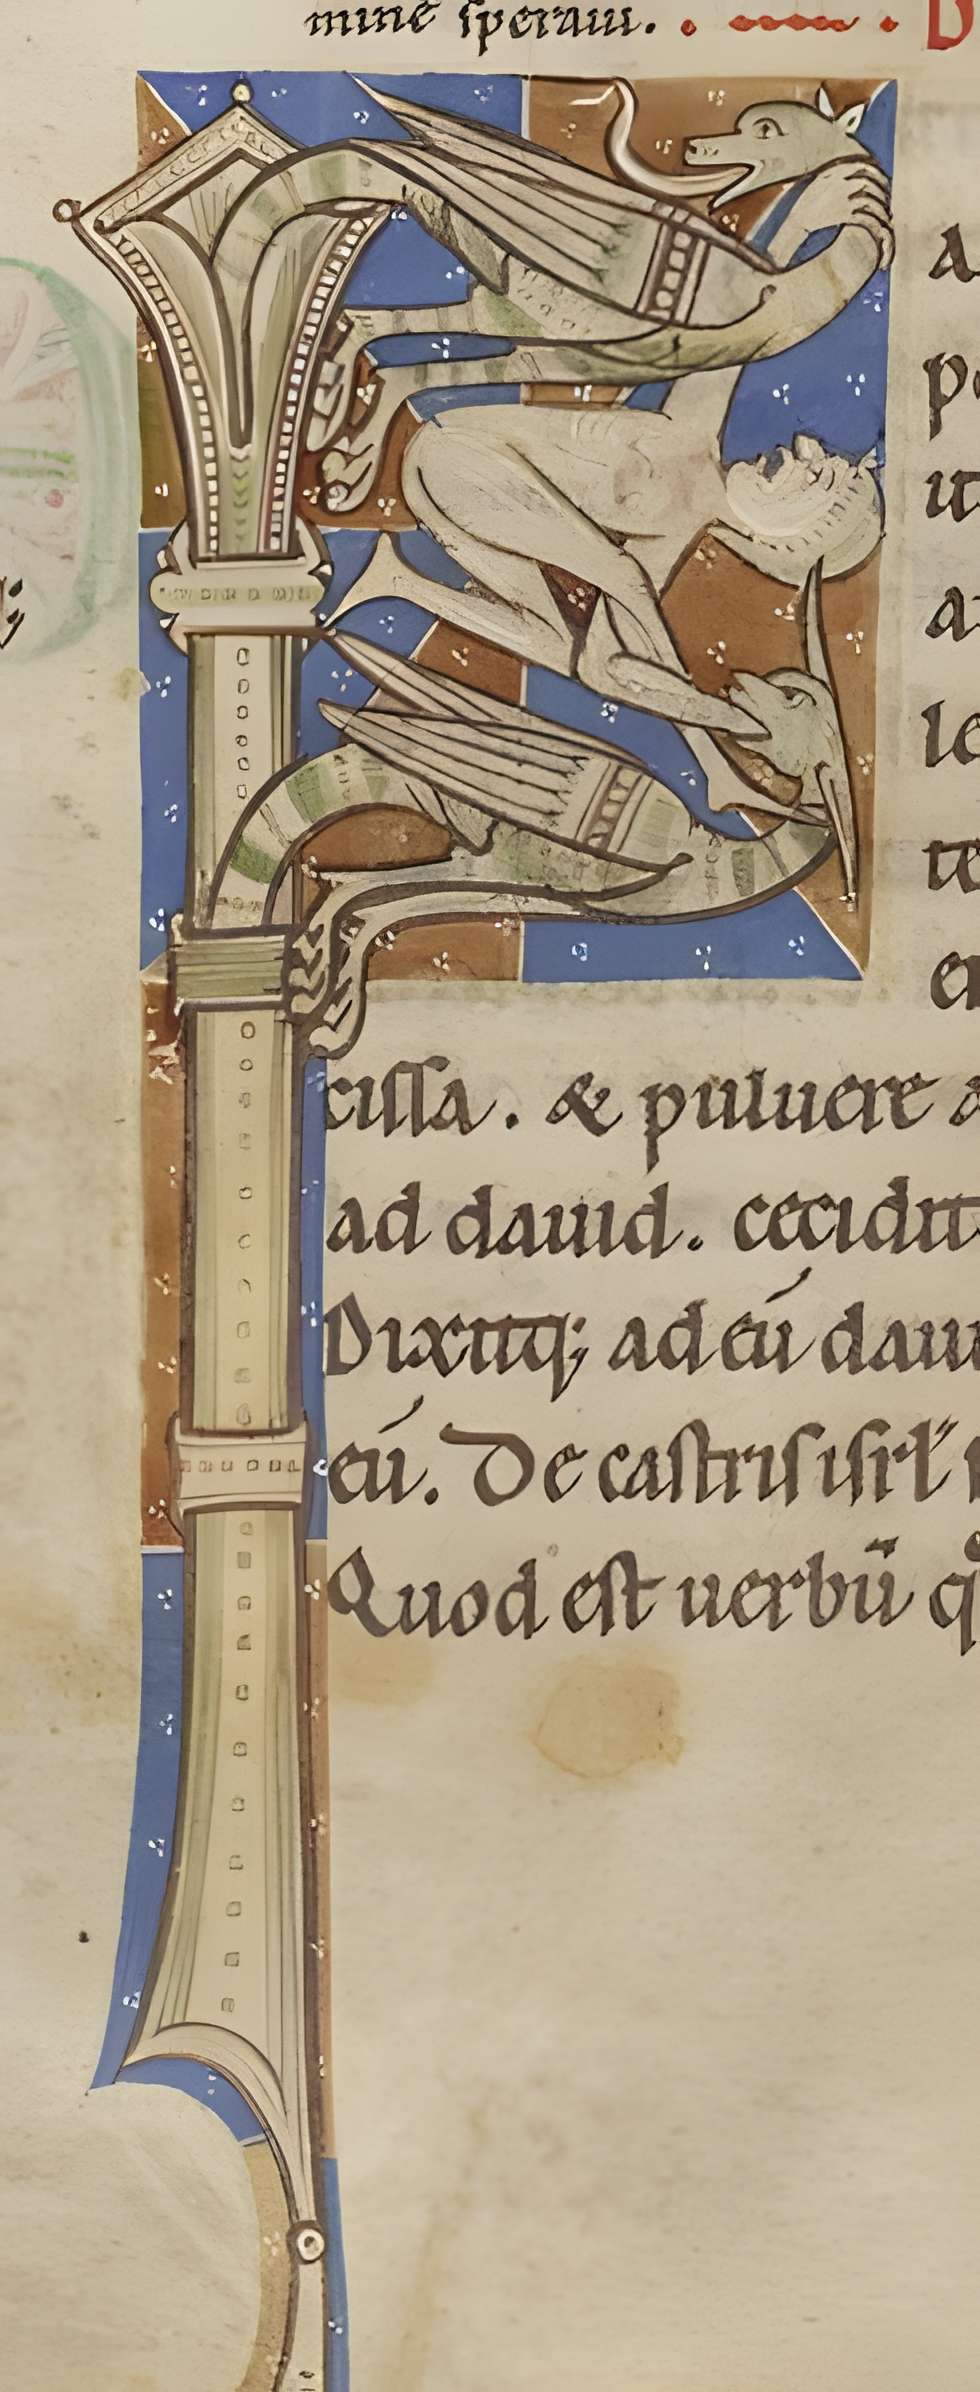 mine speraui.
a
p
it
a
le
te
en
cissa. & puluere a
ad dauid. cecidit
Dixitq; ad eū daui
eū. De castris isrl'
Quod est uerbū q